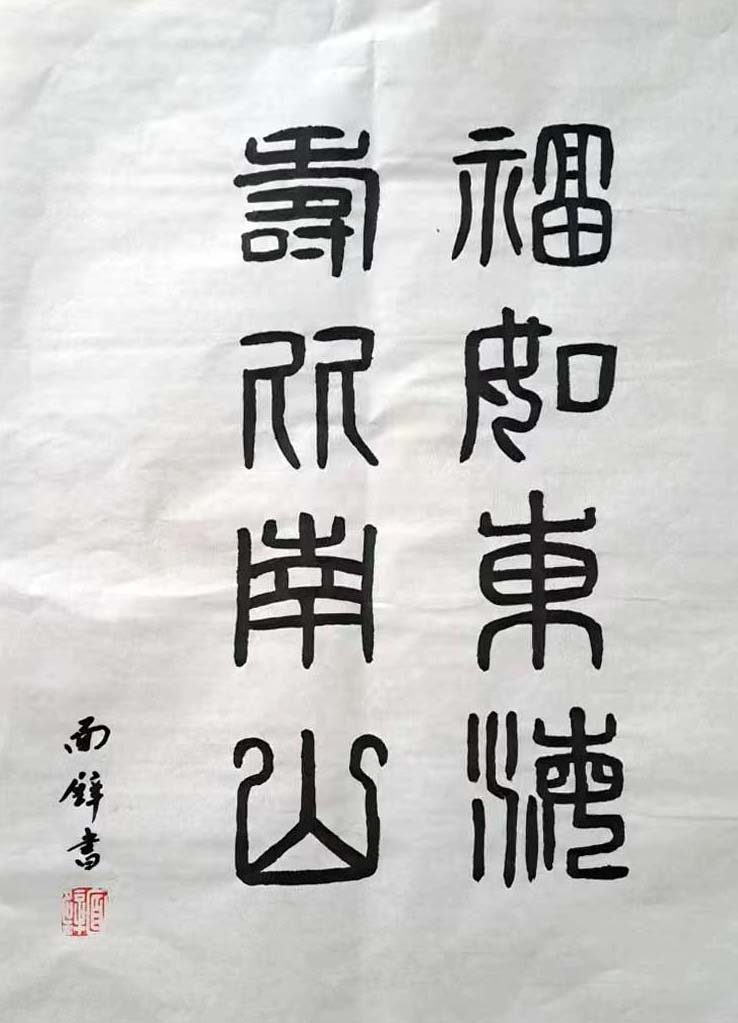 福如東海
壽比南山
面壁書